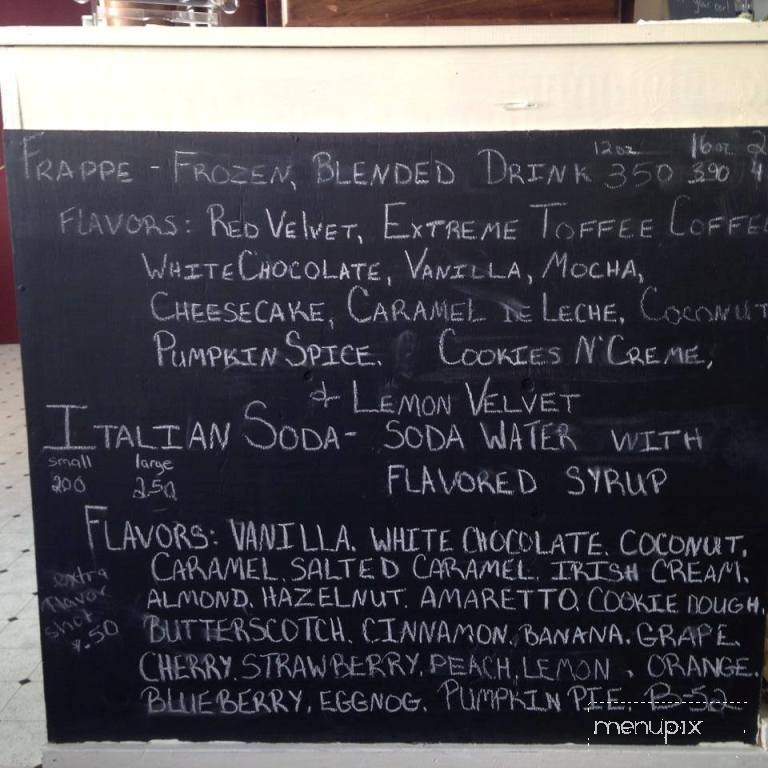 12oz 16oz 2
FRAPPE - FROZEN, BLENDED DRINK 350 390 4
FLAVORS: RED VELVET, EXTREME TOFFEE COFFEE
WHITE CHOCOLATE, VANILLA, MOCHA,
CHEESECAKE, CARAMEL DE LECHE, COCONUT
PUMPKIN SPICE, COOKIES N' CREME,
& LEMON VELVET
ITALIAN SODA- SODA WATER WITH
small large
200 250
FLAVORED SYRUP
FLAVORS: VANILLA, WHITE CHOCOLATE, COCONUT,
CARAMEL, SALTED CARAMEL, IRISH CREAM,
ALMOND, HAZELNUT, AMARETTO, COOKIE DOUGH,
BUTTERSCOTCH, CINNAMON, BANANA, GRAPE,
CHERRY, STRAWBERRY, PEACH, LEMON, ORANGE,
BLUEBERRY, EGGNOG, PUMPKIN PIE, B-52
extra
flavor
shot
.50
menupix